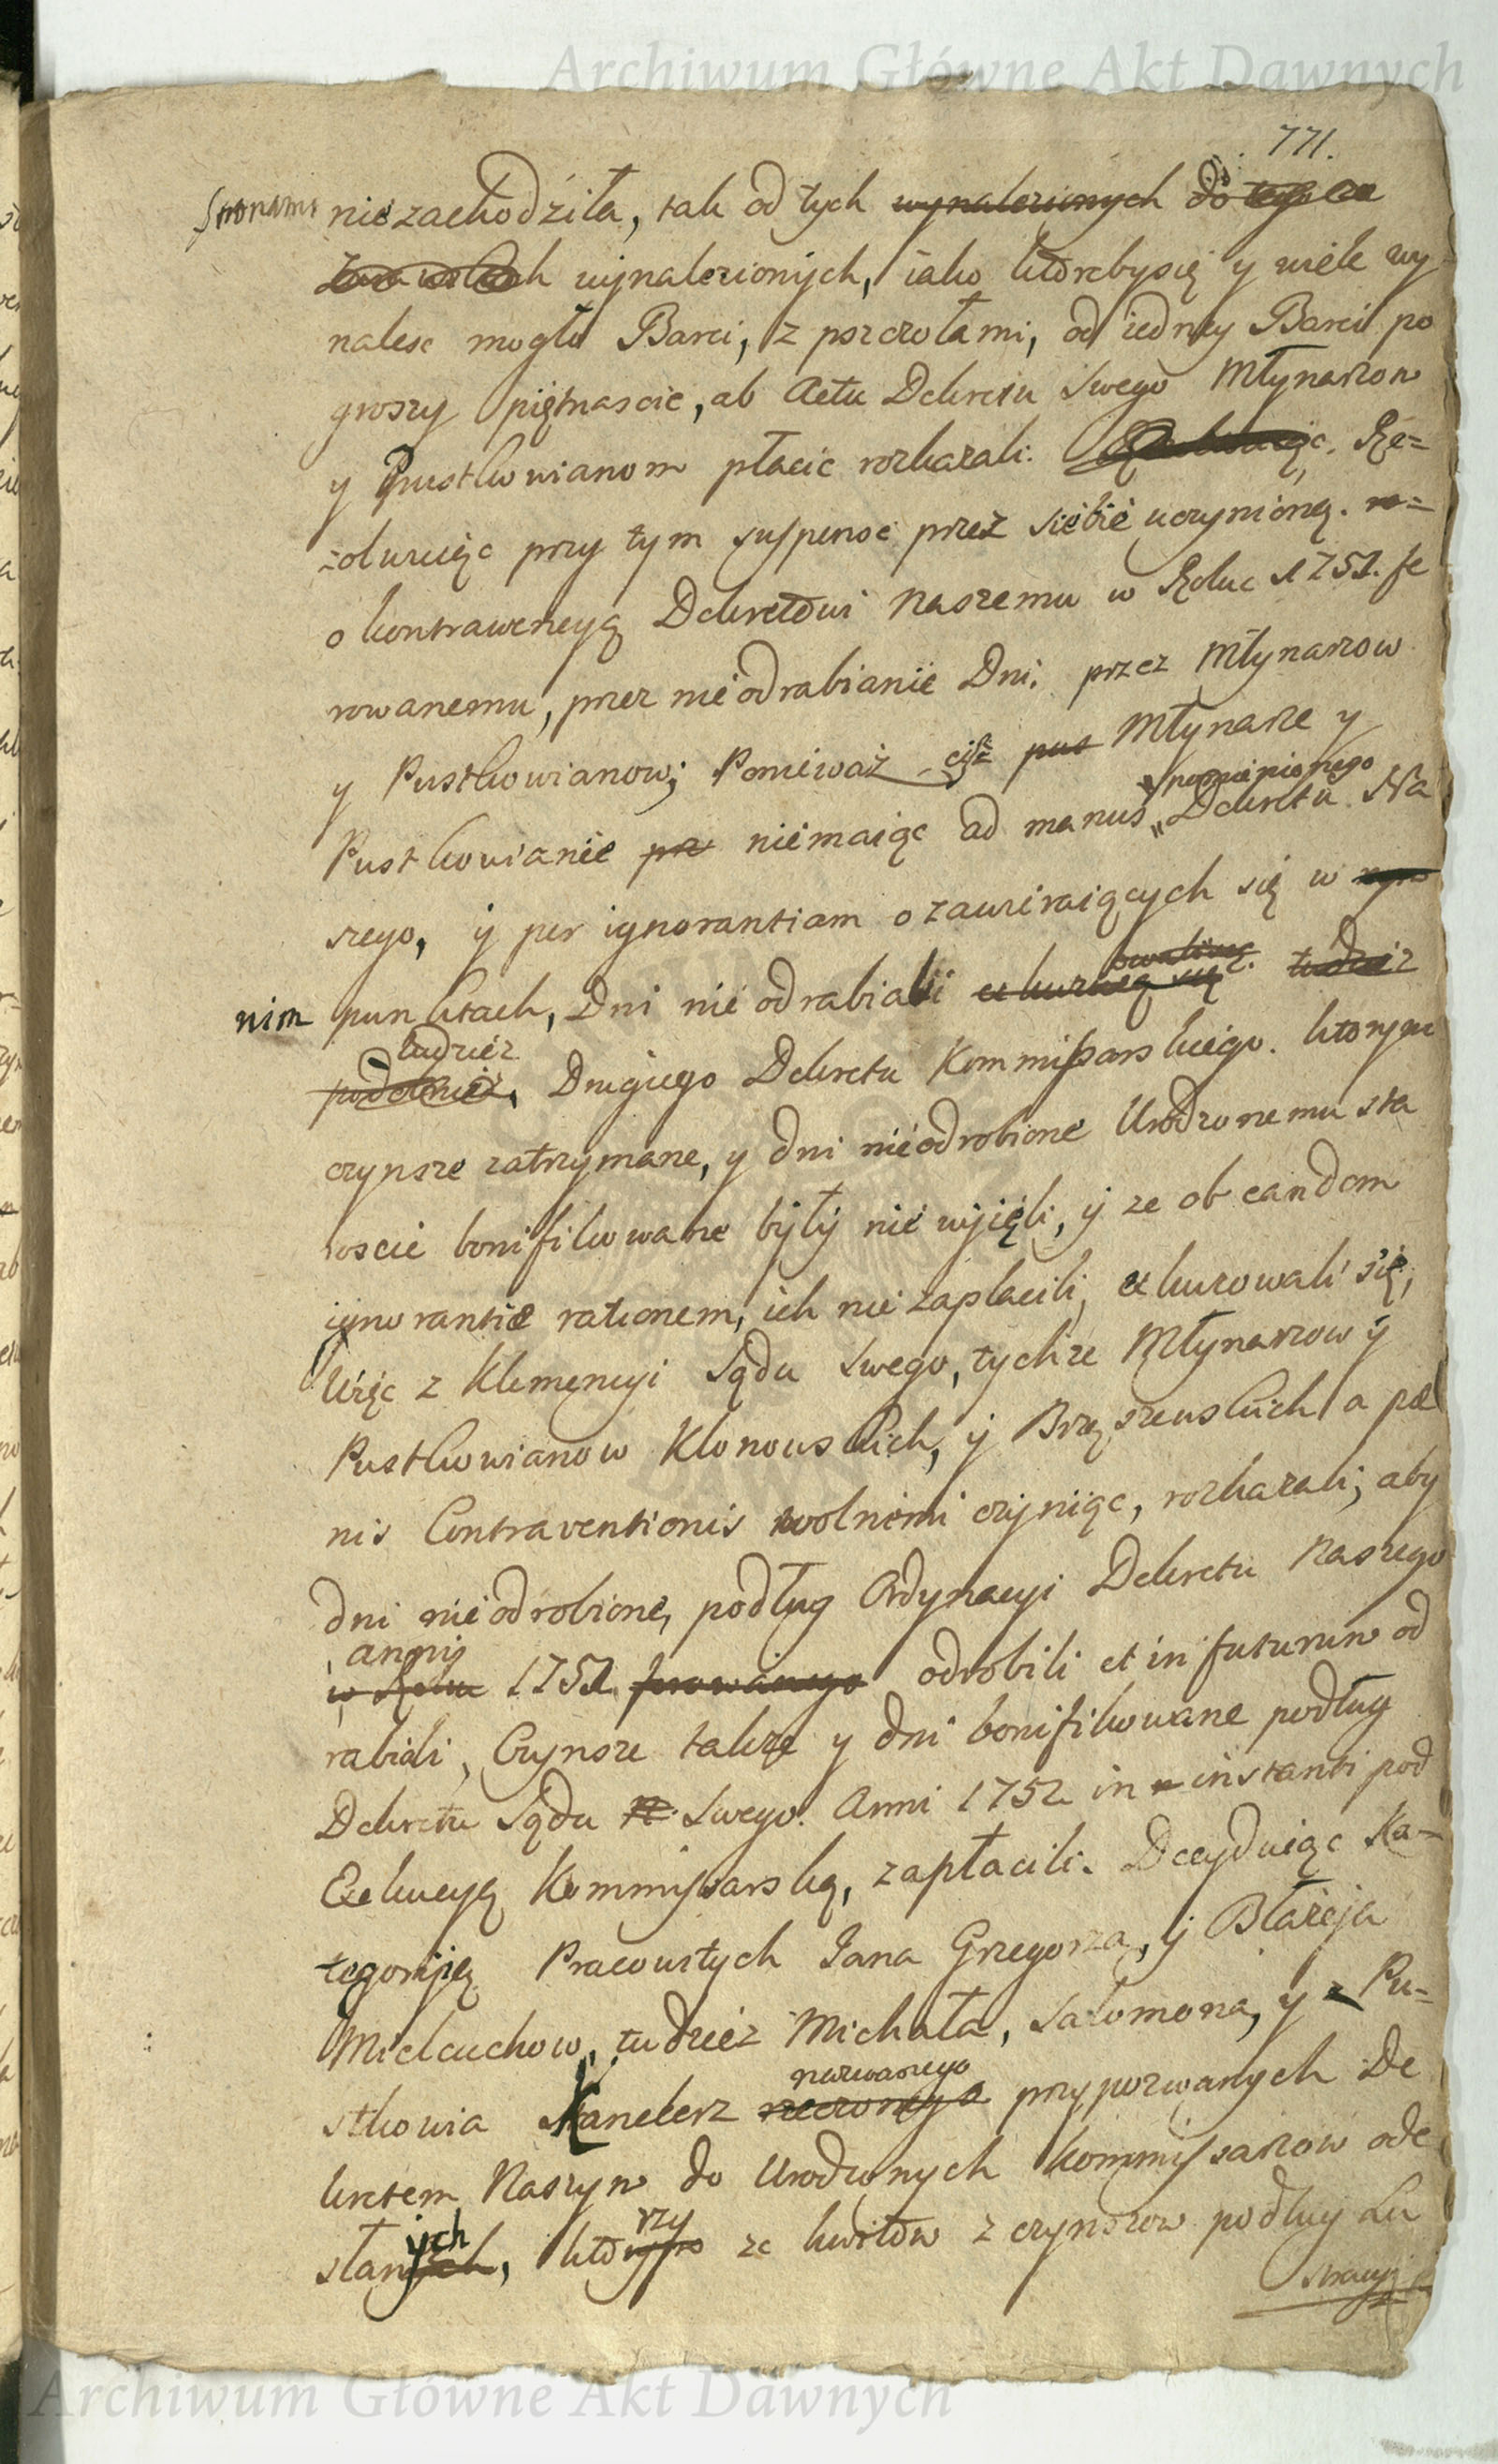 Archiwum Główne Akt Dawnych
771.
Stronami niezachodźiła, tak od tych wynalezionych do tego
wynalezionych, iako ktorebysię y wiele wy
nalesc mogło Barci, z pszczołami, od iedney Barci po
groszy piętnascie, ab Actu Dekretu swego Młynarzom
y Pustkowianom płacic rozkazali. Re=
zolwuiąc przy tym suspensę przez siebie uczynioną.
o kontrawencyą Dekretowi Naszemu w Roku 1751. fe
rowanemu, przez nieodrabianie Dni, przez Młynarzow
y Pustkowianow; Ponieważ ciż Młynarze y
wspomnionego
Pustkowianie niemaiąc ad manus Dekretu Na
szego, y per ignorantiam o zawieraiących się w
nim punktach, Dni nie odrabiali exkuzuią się tudziez
tudziez
Drugiego Dekretu Kommissarskiego. ktorym
czynsze zatrzymane, y dni nieodrobione Urodzonemu Sta
roscie bonifikowane były nie wyięli, y ze ob eandem
ignorantiæ rationem, ich nie zapłacili, exkuzowali się,
Więc z Klemencyi Sądu swego, tychze Młynarzow y
Pustkowianow Klonowskich, y Brzęszewskich a pæ
nis Contraventionis wolnemi czyniąc, rozkazali, aby
dni nieodrobione, podług Ordynacyi Dekretu Naszego
anni
w Roku 1751 ferowanego odrobili et in futurum od
rabiali, Czynsze takze y dni bonifikowane podług
Dekretu Sądu swego. Anni 1752 in instanti pod
Exekucyą Kommissarską, zapłacili. Decyduiąc Ka=
tegoryię Pracowitych Jana Grzegorza, y Błażeja
Mielcuchow, tudziez Michała, Salomona, y Pu=
nazwanego
stkowia Kanclerz rzeczonego przypozwanych De
kretem Naszym do Urodzonych Kommissarzow ode
ych rzy
słanych, kto ze kwitow z czynszow podług Lu
stracyi
Archiwum Główne Akt Dawnych